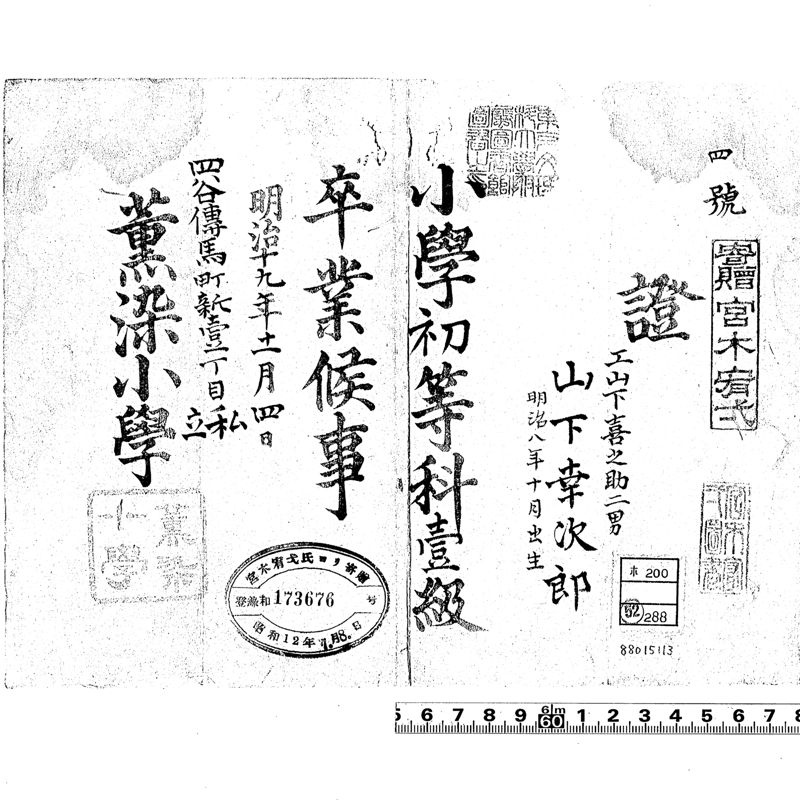 四號
寄贈宮木宥弌
證
工山下喜之助二男
山下幸次郎
明治八年十月出生
小學初等科壹級
卒業候事
明治十九年十一月四日
四谷傳馬町新壹丁目
私立
薫染小學
薫染小學
宮木宥弌氏ヨリ寄贈
登錄和173676号
昭和12年1.18.日
ホ 200
52 288
88015113
5 6 7 8 9 6m 60 1 2 3 4 5 6 7 8